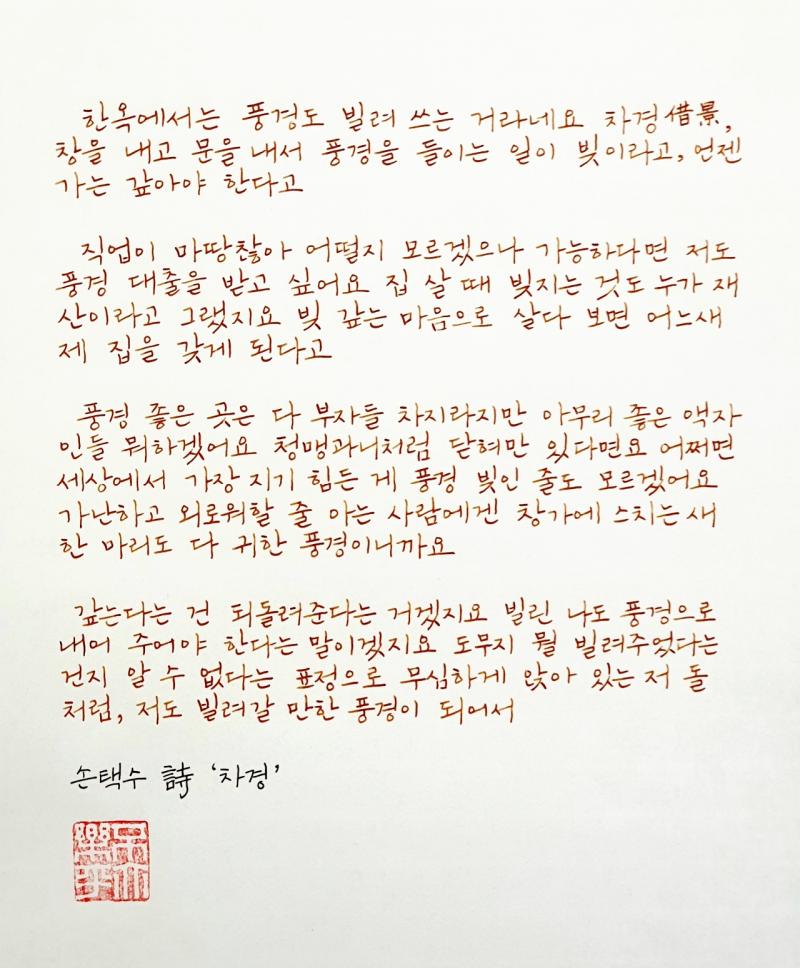 한옥에서는 풍경도 빌려 쓰는 거라네요 차경借景,
창을 내고 문을 내서 풍경을 들이는 일이 빚이라고, 언젠
가는 갚아야 한다고
직업이 마땅찮아 어떨지 모르겠으나 가능하다면 저도
풍경 대출을 받고 싶어요 집 살 때 빚지는 것도 누가 재
산이라고 그랬지요 빚 갚는 마음으로 살다 보면 어느새
제 집을 갖게 된다고
풍경 좋은 곳은 다 부자들 차지라지만 아무리 좋은 액자
인들 뭐하겠어요 청맹과니처럼 닫혀만 있다면요 어쩌면
세상에서 가장 지기 힘든 게 풍경 빚인 줄도 모르겠어요
가난하고 외로워할 줄 아는 사람에겐 창가에 스치는 새
한 마리도 다 귀한 풍경이니까요
갚는다는 건 되돌려준다는 거겠지요 빌린 나도 풍경으로
내어 주어야 한다는 말이겠지요 도무지 뭘 빌려주었다는
건지 알 수 없다는 표정으로 무심하게 앉아 있는 저 돌
처럼, 저도 빌려갈 만한 풍경이 되어서
손택수 詩 '차경'